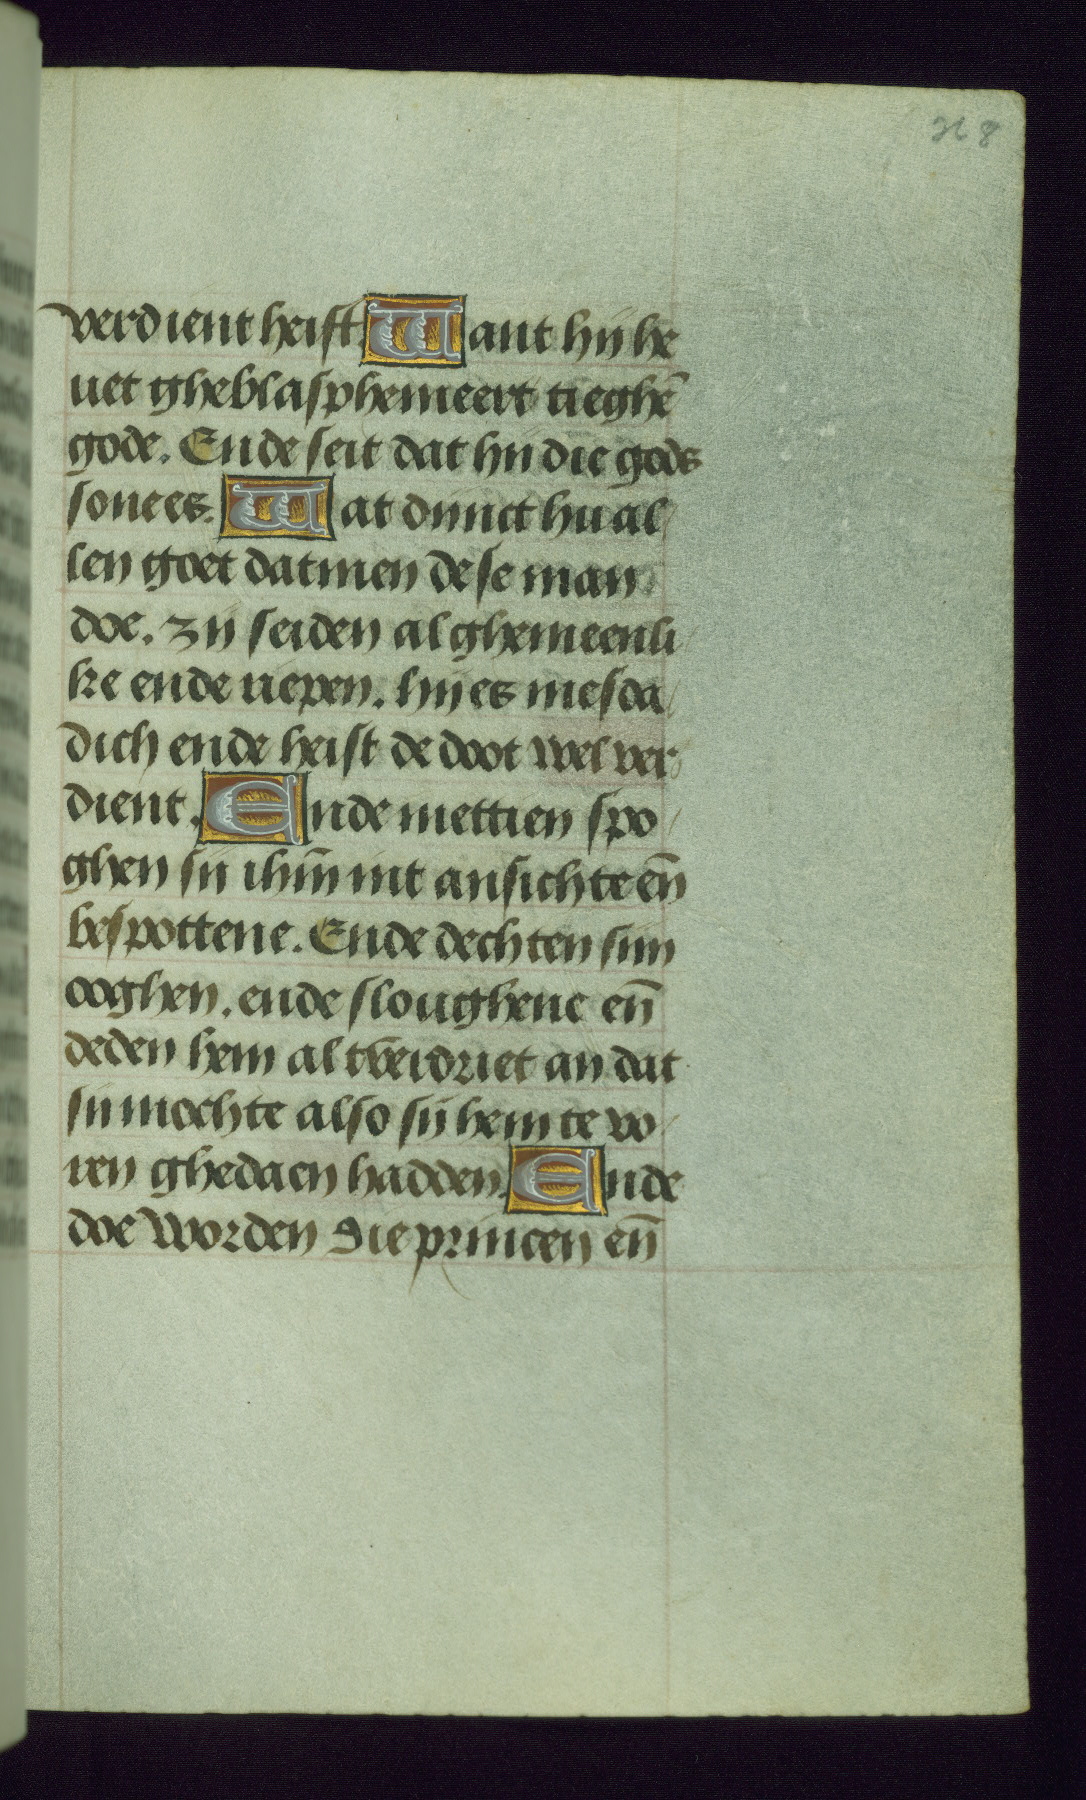 268
verdient heift. Want hij he
uet gheblasphemeert tieghē
gode. Ende seit dat hij die gods
sone es. Wat dunct hu al
len goet datmen dese man
doe. zij seiden al ghemeenli
ke ende riepen. hij es mesda
dich ende heist de doot wel ver
dient. Ende mettien spo
ghen sij ihm̄ int ansichte en̄
bespottene. Ende dechten sijn
ooghen. ende sloughene en̄
deden hem al tverdriet an dat
sij mochte also sij hem te vo
ren ghedaen hadden. Ende
doe worden die princen en̄